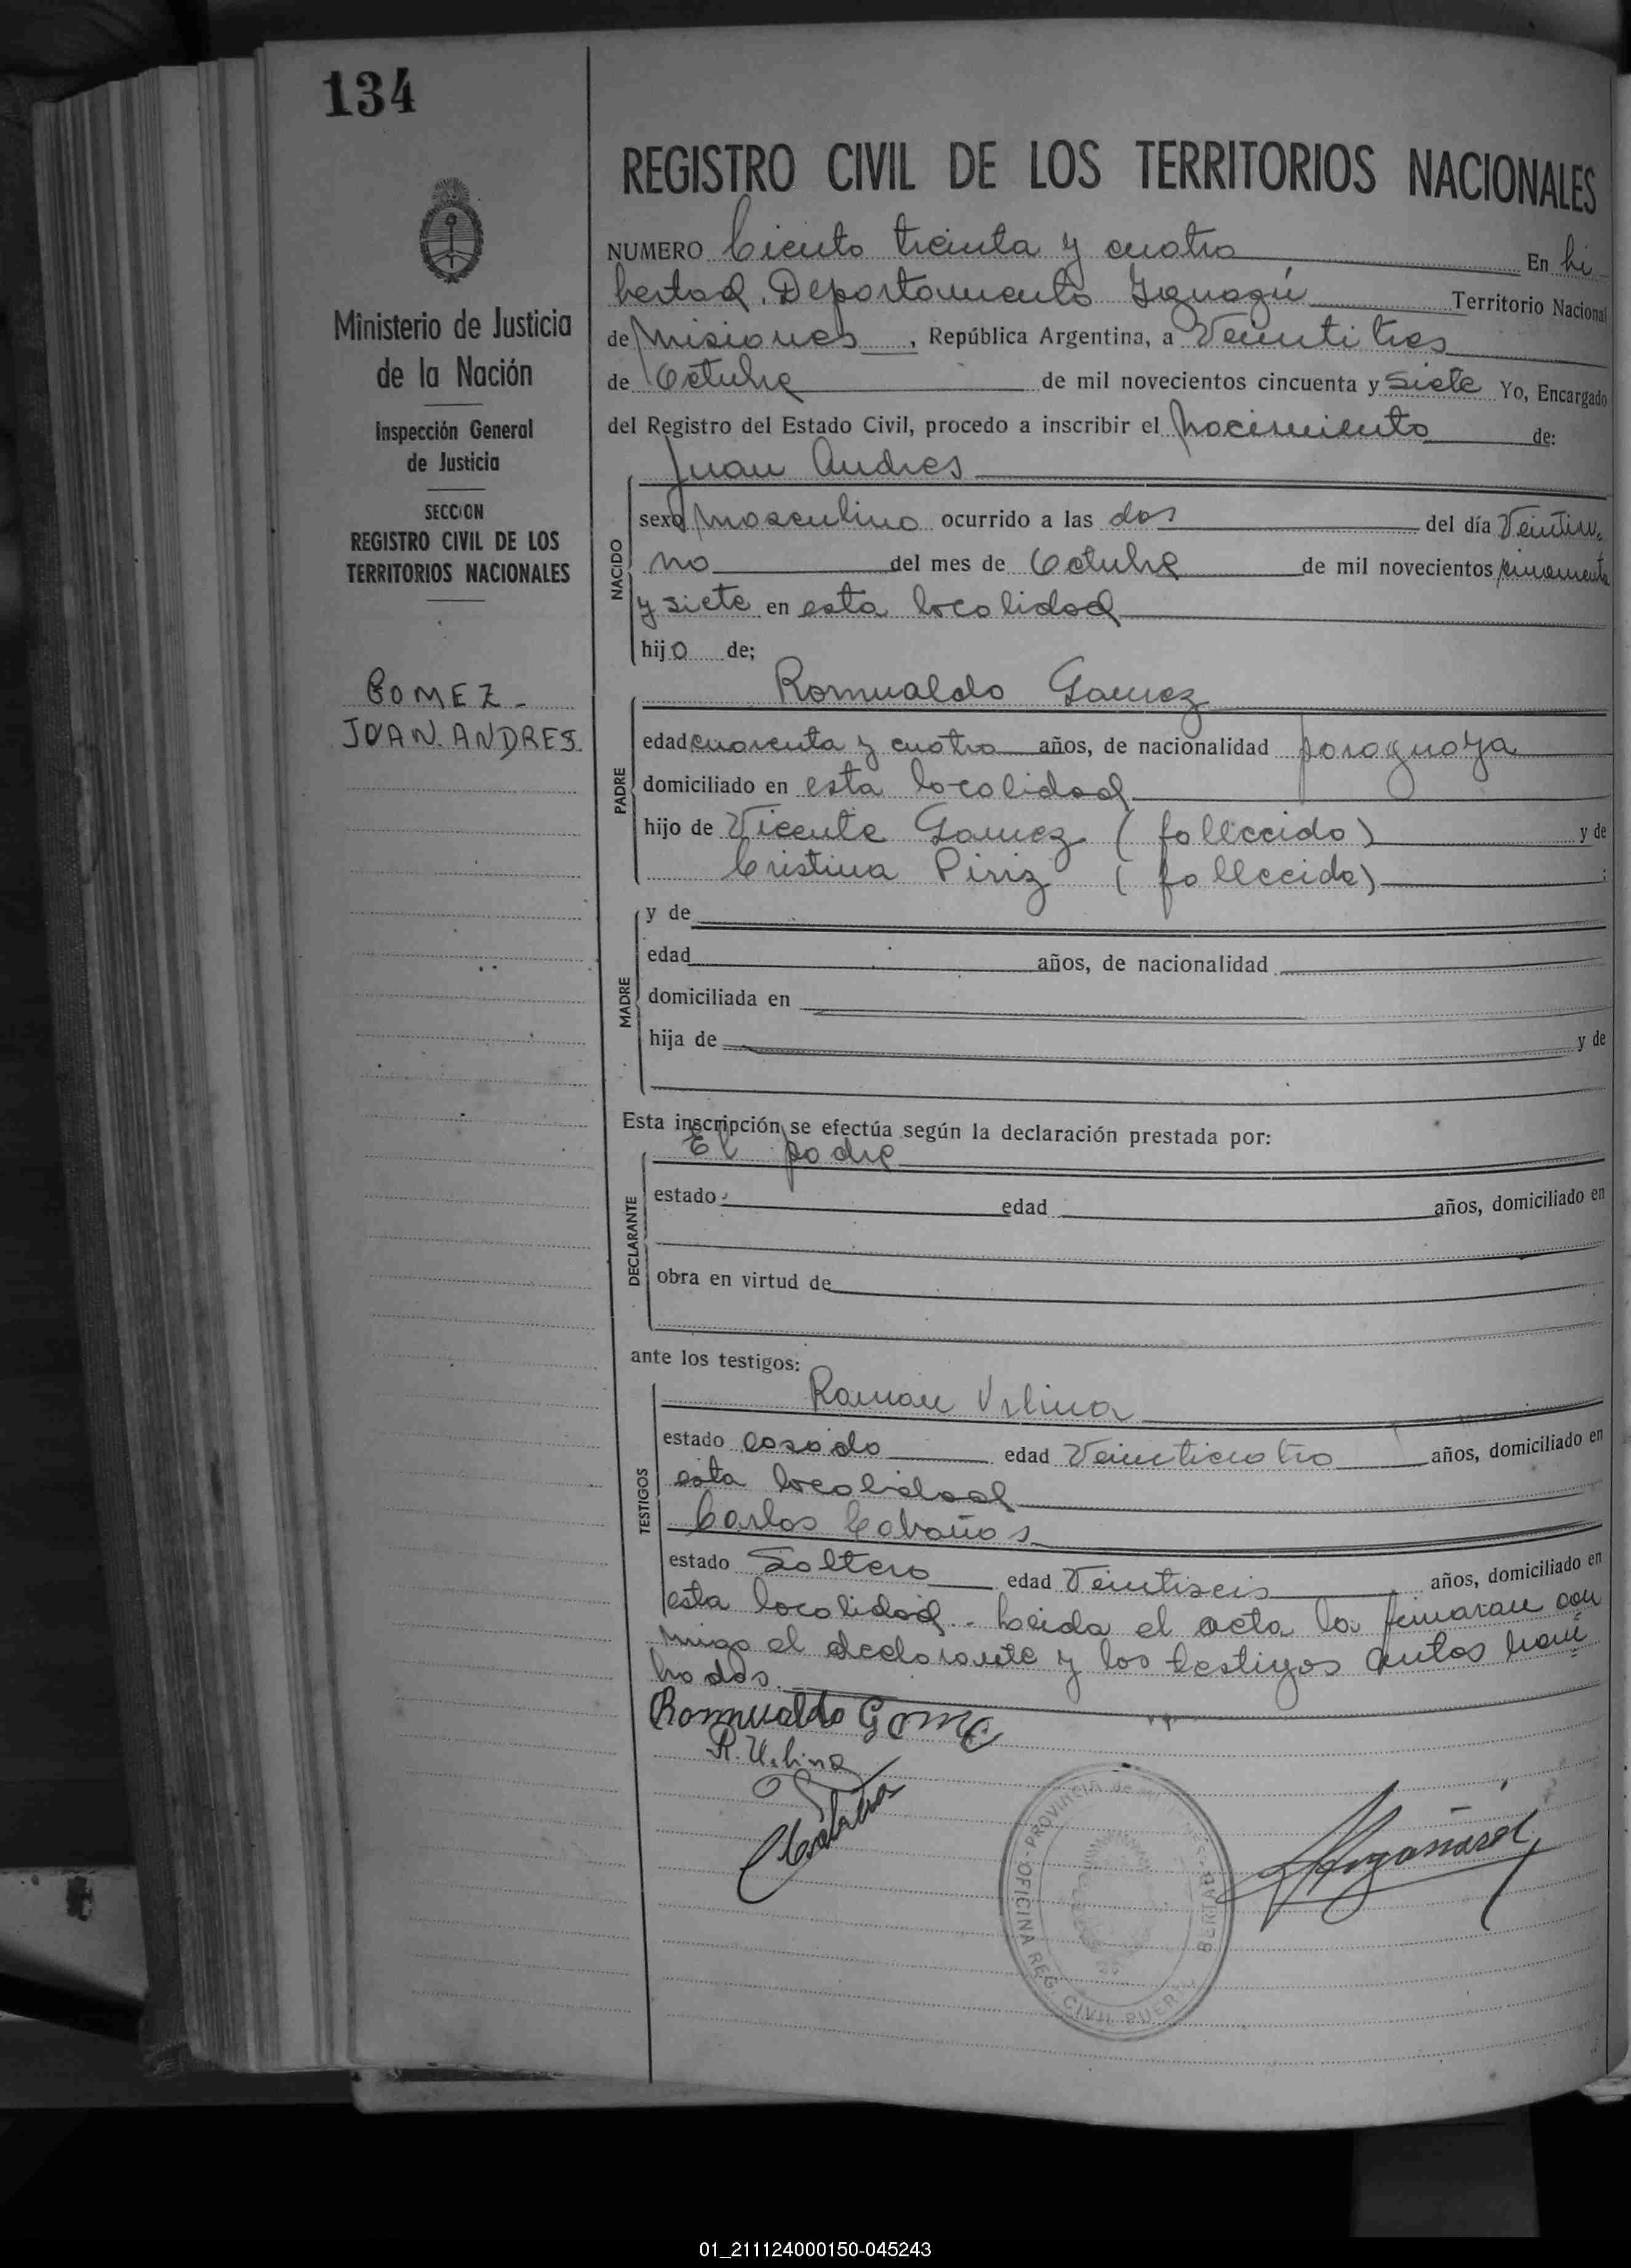 134
Ministerio de Justicia
de la Nación
Inspección General
de Justicia
SECCION
REGISTRO CIVIL DE LOS
TERRITORIOS NACIONALES
GOMEZ -
JUAN. ANDRES.
REGISTRO CIVIL DE LOS TERRITORIOS NACIONALES
NUMERO Ciento treinta y cuatro En Li
bertad, Departamento Iguazú Territorio Nacional
de Misiones, República Argentina, a Veintitres
de Octubre de mil novecientos cincuenta y siete Yo, Encargado
del Registro del Estado Civil, procedo a inscribir el Nacimiento de:
Juan Andres
NACIDO
sexo masculino ocurrido a las dos del día Veintiu-
no del mes de Octubre de mil novecientos cincuenta
y siete en esta localidad
hijo de;
Romualdo Gomez
PADRE
edad cuarenta y cuatro años, de nacionalidad paraguaya
domiciliado en esta localidad
hijo de Vicente Gomez (fallecido) y de
Cristina Piriz (fallecida) ;
MADRE
y de
edad años, de nacionalidad
domiciliada en
hija de y de
Esta inscripción se efectúa según la declaración prestada por:
El padre
DECLARANTE
estado edad años, domiciliado en
obra en virtud de
ante los testigos:
TESTIGOS
Ramon
estado casado edad Veinticuatro años, domiciliado en
esta localidad
Carlos Cabañas
estado Soltero edad Veintiseis años, domiciliado en
esta localidad - Leida el acta la firmaran con
migo el declarante y los testigos antes nom
brados.
Romualdo Gome
R.
OFICINA REG. CIVIL PUER BERTAD - PROVINCIA de
01_211124000150-045243